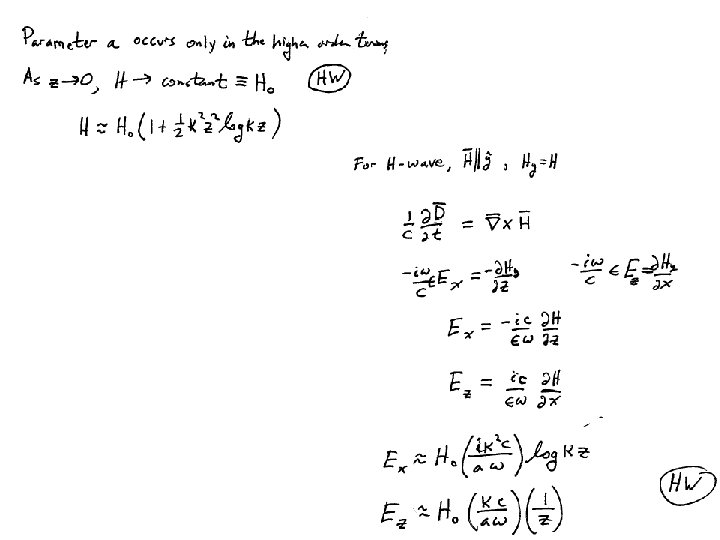 Parameter a occurs only in the higher order terms
As z→0, H → constant ≡ H₀ (HW)
H ≈ H₀(1 + ½ K²z² log Kz)
For H-wave, H̄∥ŷ, H_y = H
1/c ∂D̄/∂t = ∇̄ × H̄
-iω/c ϵE_x = -∂H_y/∂z    -iω/c ϵ E_z = ∂H_y/∂x
E_x = -ic/ϵω ∂H/∂z
E_z = ic/ϵω ∂H/∂x
E_x ≈ H₀ (iK²c/aω) log Kz
E_z ≈ H₀ (Kc/aω)(1/z) (HW)